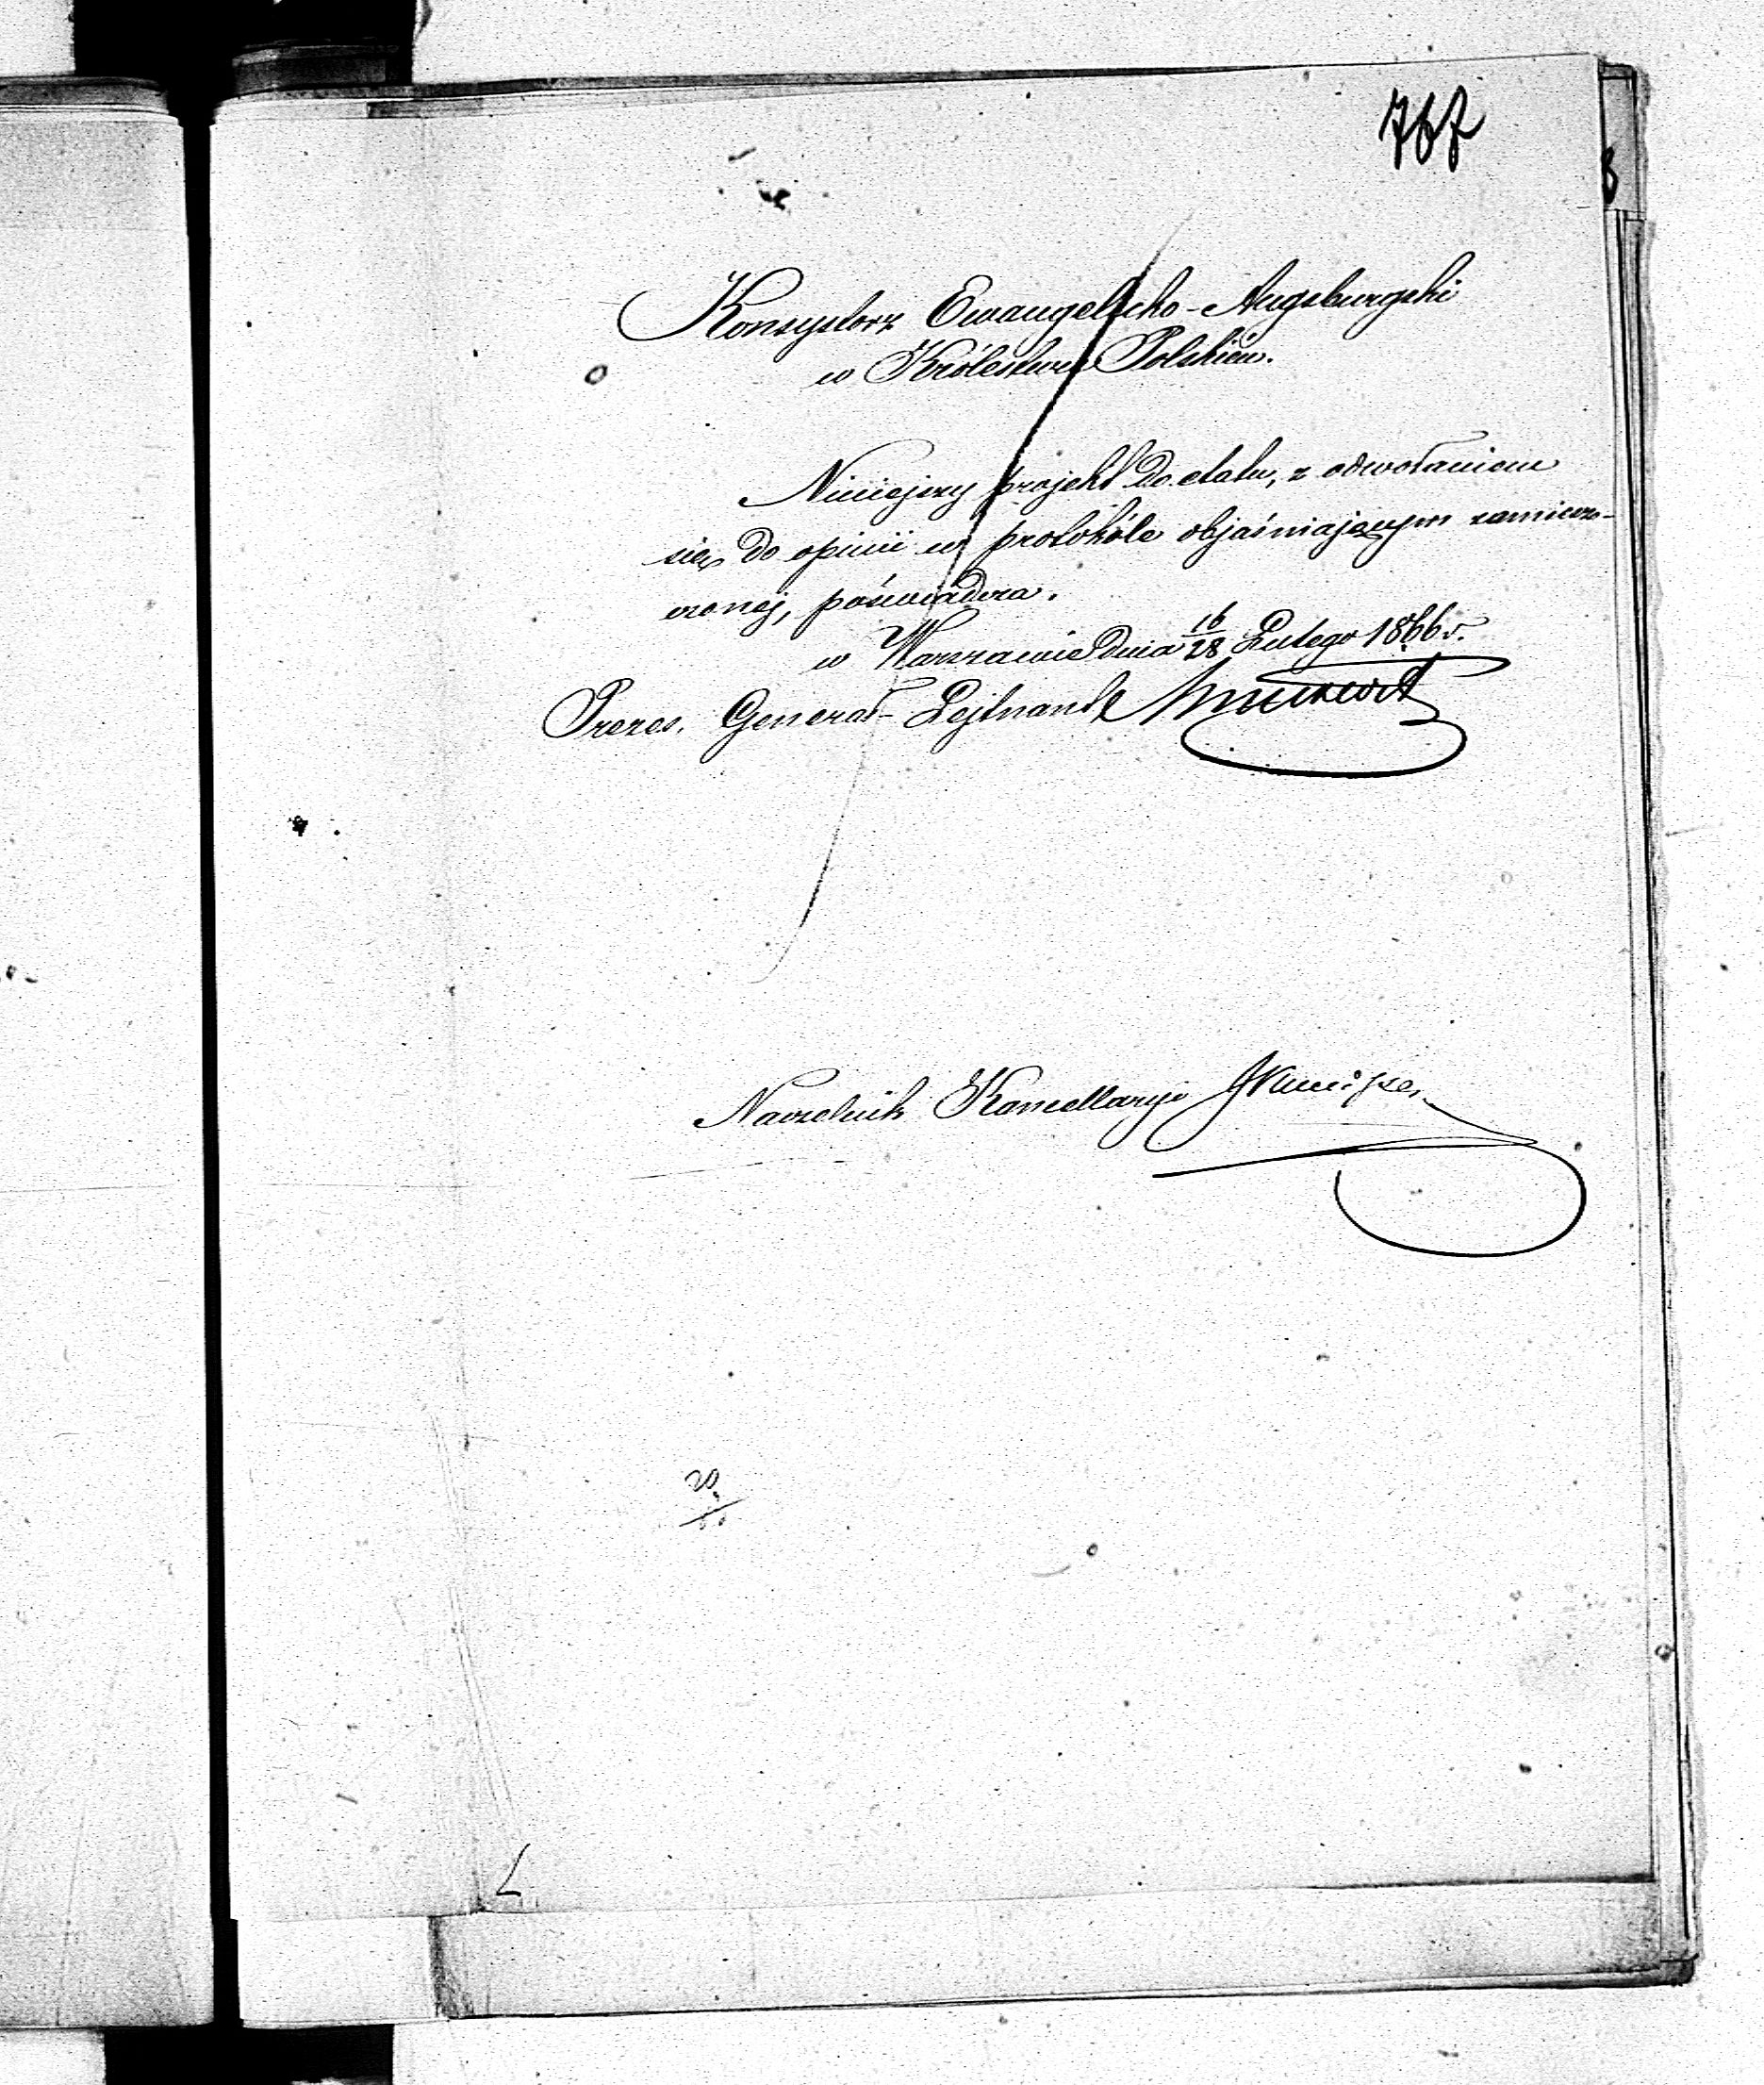 767
Konsystorz Ewangelicko-Augsburgski
w Królestwie Polskiem.
Niniejszy projekt do etatu, z odwołaniem
się do opinii w protokóle objaśniającym zamiesz-
czonej, poświadcza.
w Warszawie dnia 16/28 Lutego 1866 r.
Prezes, Generał-Lejtnant
Naczelnik Kancellaryi